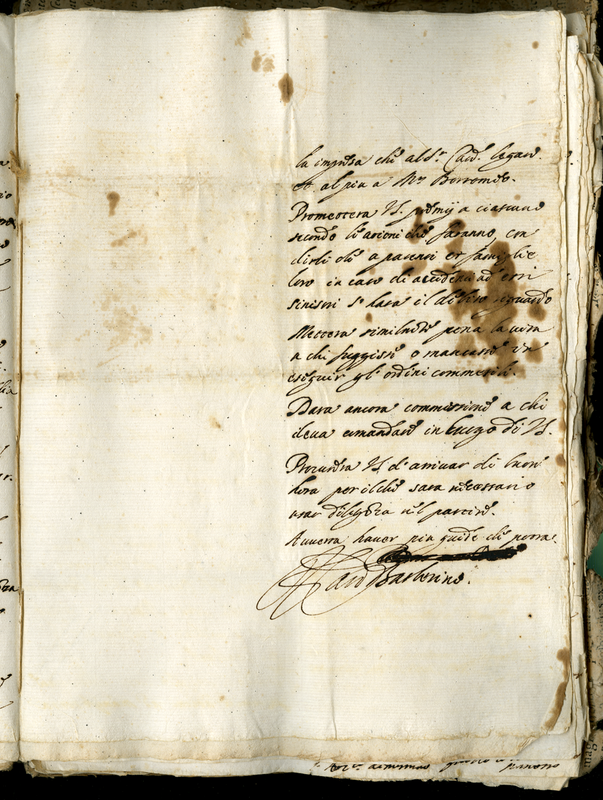 la impresa che al sr. Card. legato
et al più a Mr Borromeo.
Prometterà VS. premij a ciascuno
secondo le ationi che faranno, con
dirli che a parenti et famiglie
loro in caso di accidenti ad essi
sinistri si harà il debito riguardo
Metterà similmte pena la vita
a chi fuggisse o mancasse in
eseguir gl'ordini commessili.
Darà ancora commissione a chi
deva comandare in luogo di VS.
Procurerà VS. d'arrivar di buon'
hora per il che sarà necessario
usar diligenza nel partire.
Avverta haver più guide che potrà.
Card Barberino.